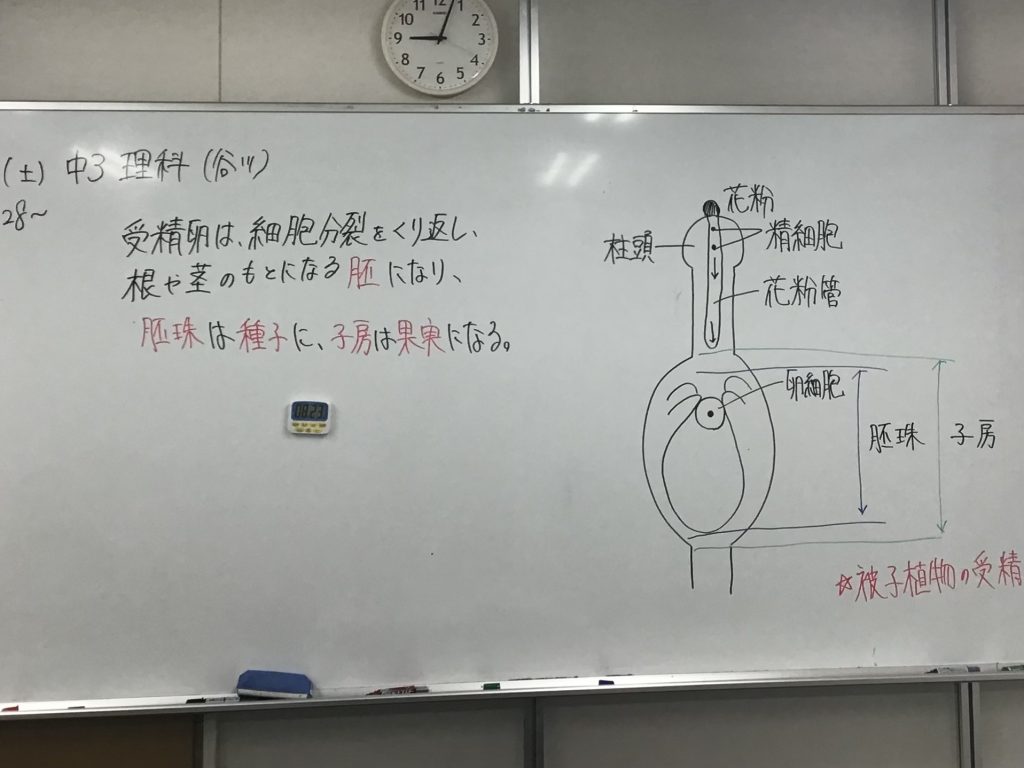 (土) 中3 理科 (谷川)
28~
受精卵は、細胞分裂をくり返し、
根や茎のもとになる 胚 になり、
胚珠は種子に、子房は果実になる。
花粉
柱頭
精細胞
花粉管
卵細胞
胚珠
子房
☆被子植物の受精
08:23
12 1 2 3 4 5 6 7 8 9 10 11